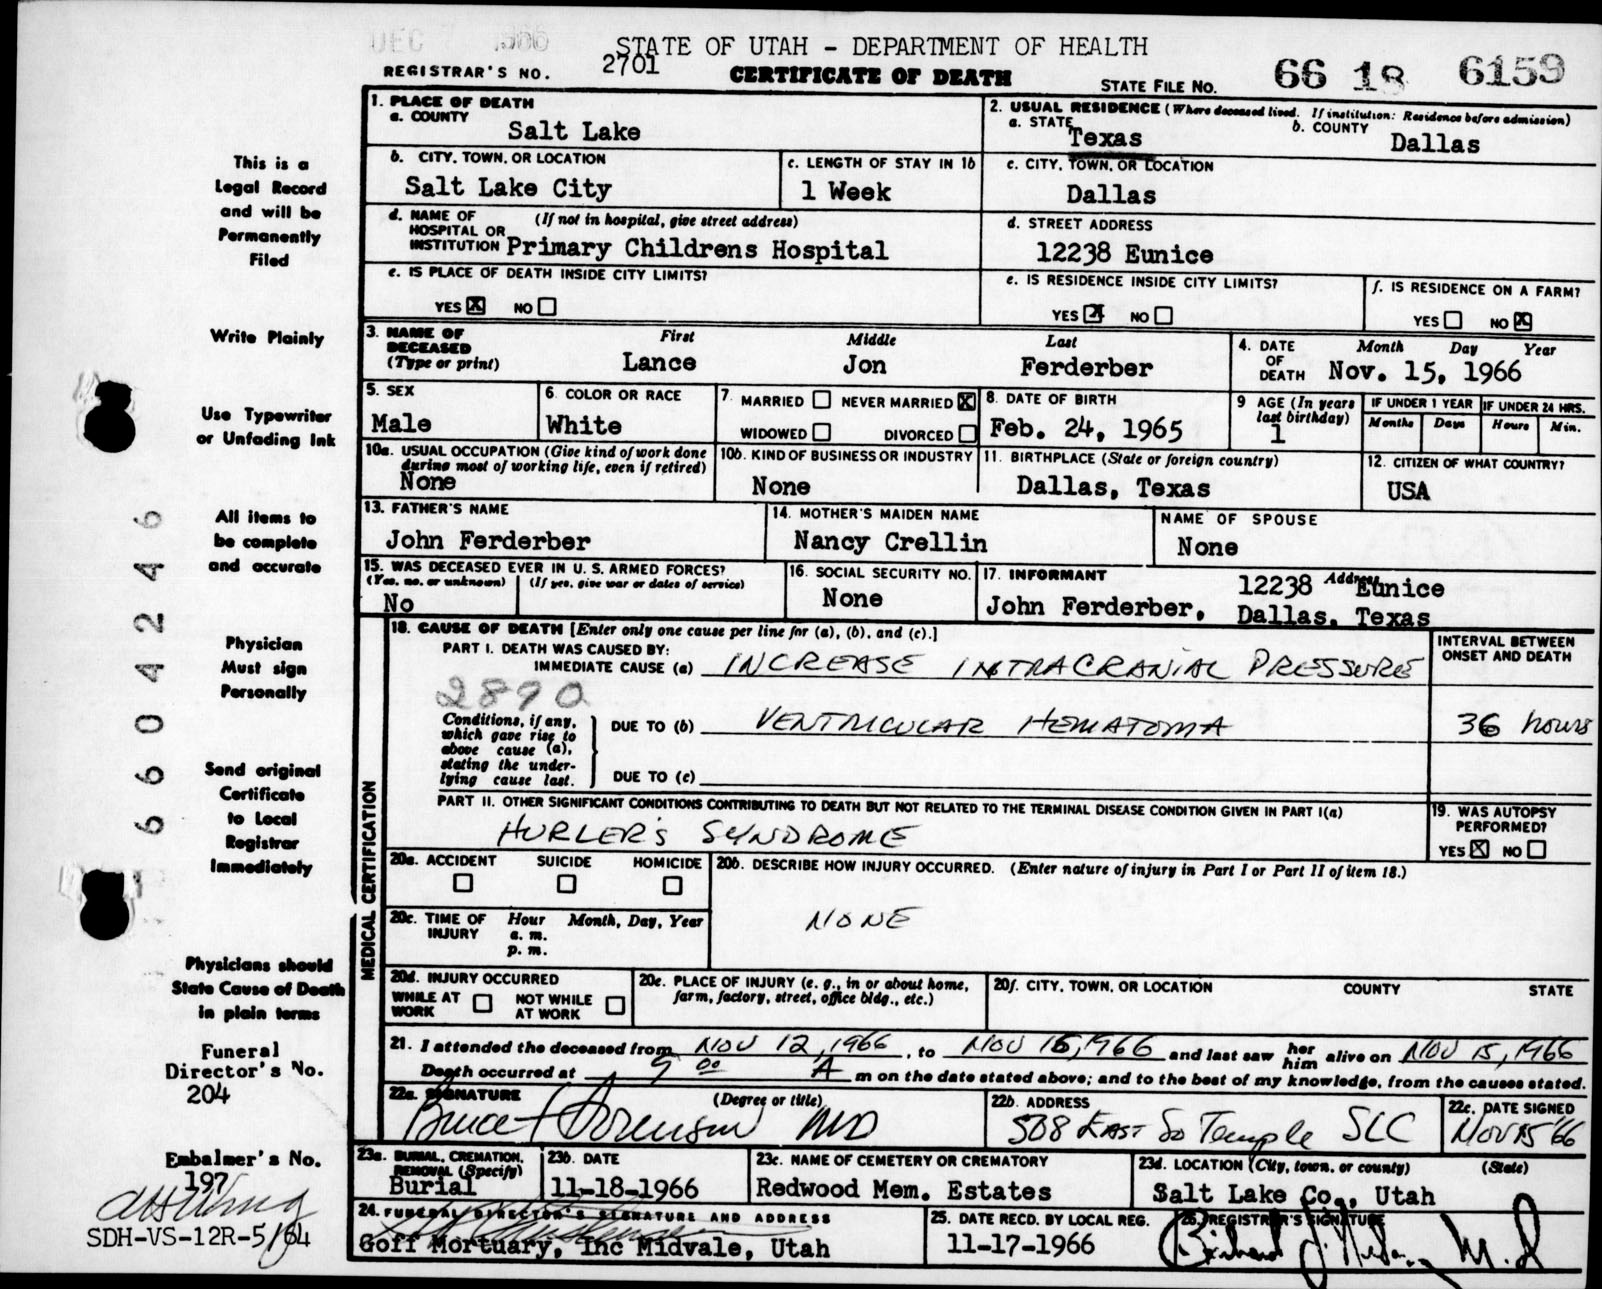 DEC 7 1966
STATE OF UTAH - DEPARTMENT OF HEALTH
REGISTRAR'S NO. 2701 CERTIFICATE OF DEATH STATE FILE NO. 66 18 6159
1. PLACE OF DEATH
a. COUNTY Salt Lake
2. USUAL RESIDENCE (Where deceased lived. If institution: Residence before admission)
a. STATE Texas b. COUNTY Dallas
b. CITY, TOWN, OR LOCATION Salt Lake City
c. LENGTH OF STAY IN 1b 1 Week
c. CITY, TOWN, OR LOCATION Dallas
d. NAME OF HOSPITAL OR INSTITUTION (If not in hospital, give street address) Primary Childrens Hospital
d. STREET ADDRESS 12238 Eunice
e. IS PLACE OF DEATH INSIDE CITY LIMITS?
YES X NO
e. IS RESIDENCE INSIDE CITY LIMITS?
YES X NO
f. IS RESIDENCE ON A FARM?
YES NO X
3. NAME OF DECEASED (Type or print) First Middle Last
Lance Jon Ferderber
4. DATE OF DEATH Month Day Year
Nov. 15, 1966
5. SEX Male
6. COLOR OR RACE White
7. MARRIED NEVER MARRIED X
WIDOWED DIVORCED
8. DATE OF BIRTH Feb. 24, 1965
9 AGE (In years last birthday) 1
IF UNDER 1 YEAR Months Days
IF UNDER 24 HRS. Hours Min.
10a. USUAL OCCUPATION (Give kind of work done during most of working life, even if retired) None
10b. KIND OF BUSINESS OR INDUSTRY None
11. BIRTHPLACE (State or foreign country) Dallas, Texas
12. CITIZEN OF WHAT COUNTRY? USA
13. FATHER'S NAME John Ferderber
14. MOTHER'S MAIDEN NAME Nancy Crellin
NAME OF SPOUSE None
15. WAS DECEASED EVER IN U. S. ARMED FORCES?
(Yes, no, or unknown) (If yes, give war or dates of service)
No
16. SOCIAL SECURITY NO. None
17. INFORMANT Address
John Ferderber, 12238 Eunice
Dallas, Texas
MEDICAL CERTIFICATION
18. CAUSE OF DEATH [Enter only one cause per line for (a), (b), and (c).]
PART I. DEATH WAS CAUSED BY:
IMMEDIATE CAUSE (a) INCREASE INTRACRANIAL PRESSURE
INTERVAL BETWEEN ONSET AND DEATH
2890
Conditions, if any, which gave rise to above cause (a), stating the underlying cause last.
DUE TO (b) VENTRICULAR HEMATOMA 36 hours
DUE TO (c)
PART II. OTHER SIGNIFICANT CONDITIONS CONTRIBUTING TO DEATH BUT NOT RELATED TO THE TERMINAL DISEASE CONDITION GIVEN IN PART I(a)
HURLER'S SYNDROME
19. WAS AUTOPSY PERFORMED?
YES X NO
20a. ACCIDENT SUICIDE HOMICIDE
20b. DESCRIBE HOW INJURY OCCURRED. (Enter nature of injury in Part I or Part II of item 18.)
NONE
20c. TIME OF INJURY Hour Month, Day, Year
a. m.
p. m.
20d. INJURY OCCURRED
WHILE AT WORK NOT WHILE AT WORK
20e. PLACE OF INJURY (e. g., in or about home, farm, factory, street, office bldg., etc.)
20f. CITY, TOWN, OR LOCATION COUNTY STATE
21. I attended the deceased from NOV 12, 1966, to NOV 15, 1966 and last saw her him alive on NOV 15, 1966
Death occurred at 9 00 A m on the date stated above; and to the best of my knowledge, from the causes stated.
22a. SIGNATURE (Degree or title)
Bruce F Sorensen MD
22b. ADDRESS
508 EAST So Temple SLC
22c. DATE SIGNED
NOV 15 '66
23a. BURIAL, CREMATION, REMOVAL (Specify) Burial
23b. DATE 11-18-1966
23c. NAME OF CEMETERY OR CREMATORY Redwood Mem. Estates
23d. LOCATION (City, town, or county) (State)
Salt Lake Co., Utah
24. FUNERAL DIRECTOR'S SIGNATURE AND ADDRESS
Goff Mortuary, Inc Midvale, Utah
25. DATE RECD. BY LOCAL REG. 11-17-1966
26. REGISTRAR'S SIGNATURE
M.D
This is a
Legal Record
and will be
Permanently
Filed
Write Plainly
Use Typewriter
or Unfading Ink
All items to
be complete
and accurate
Physician
Must sign
Personally
Send original
Certificate
to Local
Registrar
Immediately
Physicians should
State Cause of Death
in plain terms
Funeral
Director's No.
204
Embalmer's No.
197
SDH-VS-12R-5/64
660424 6